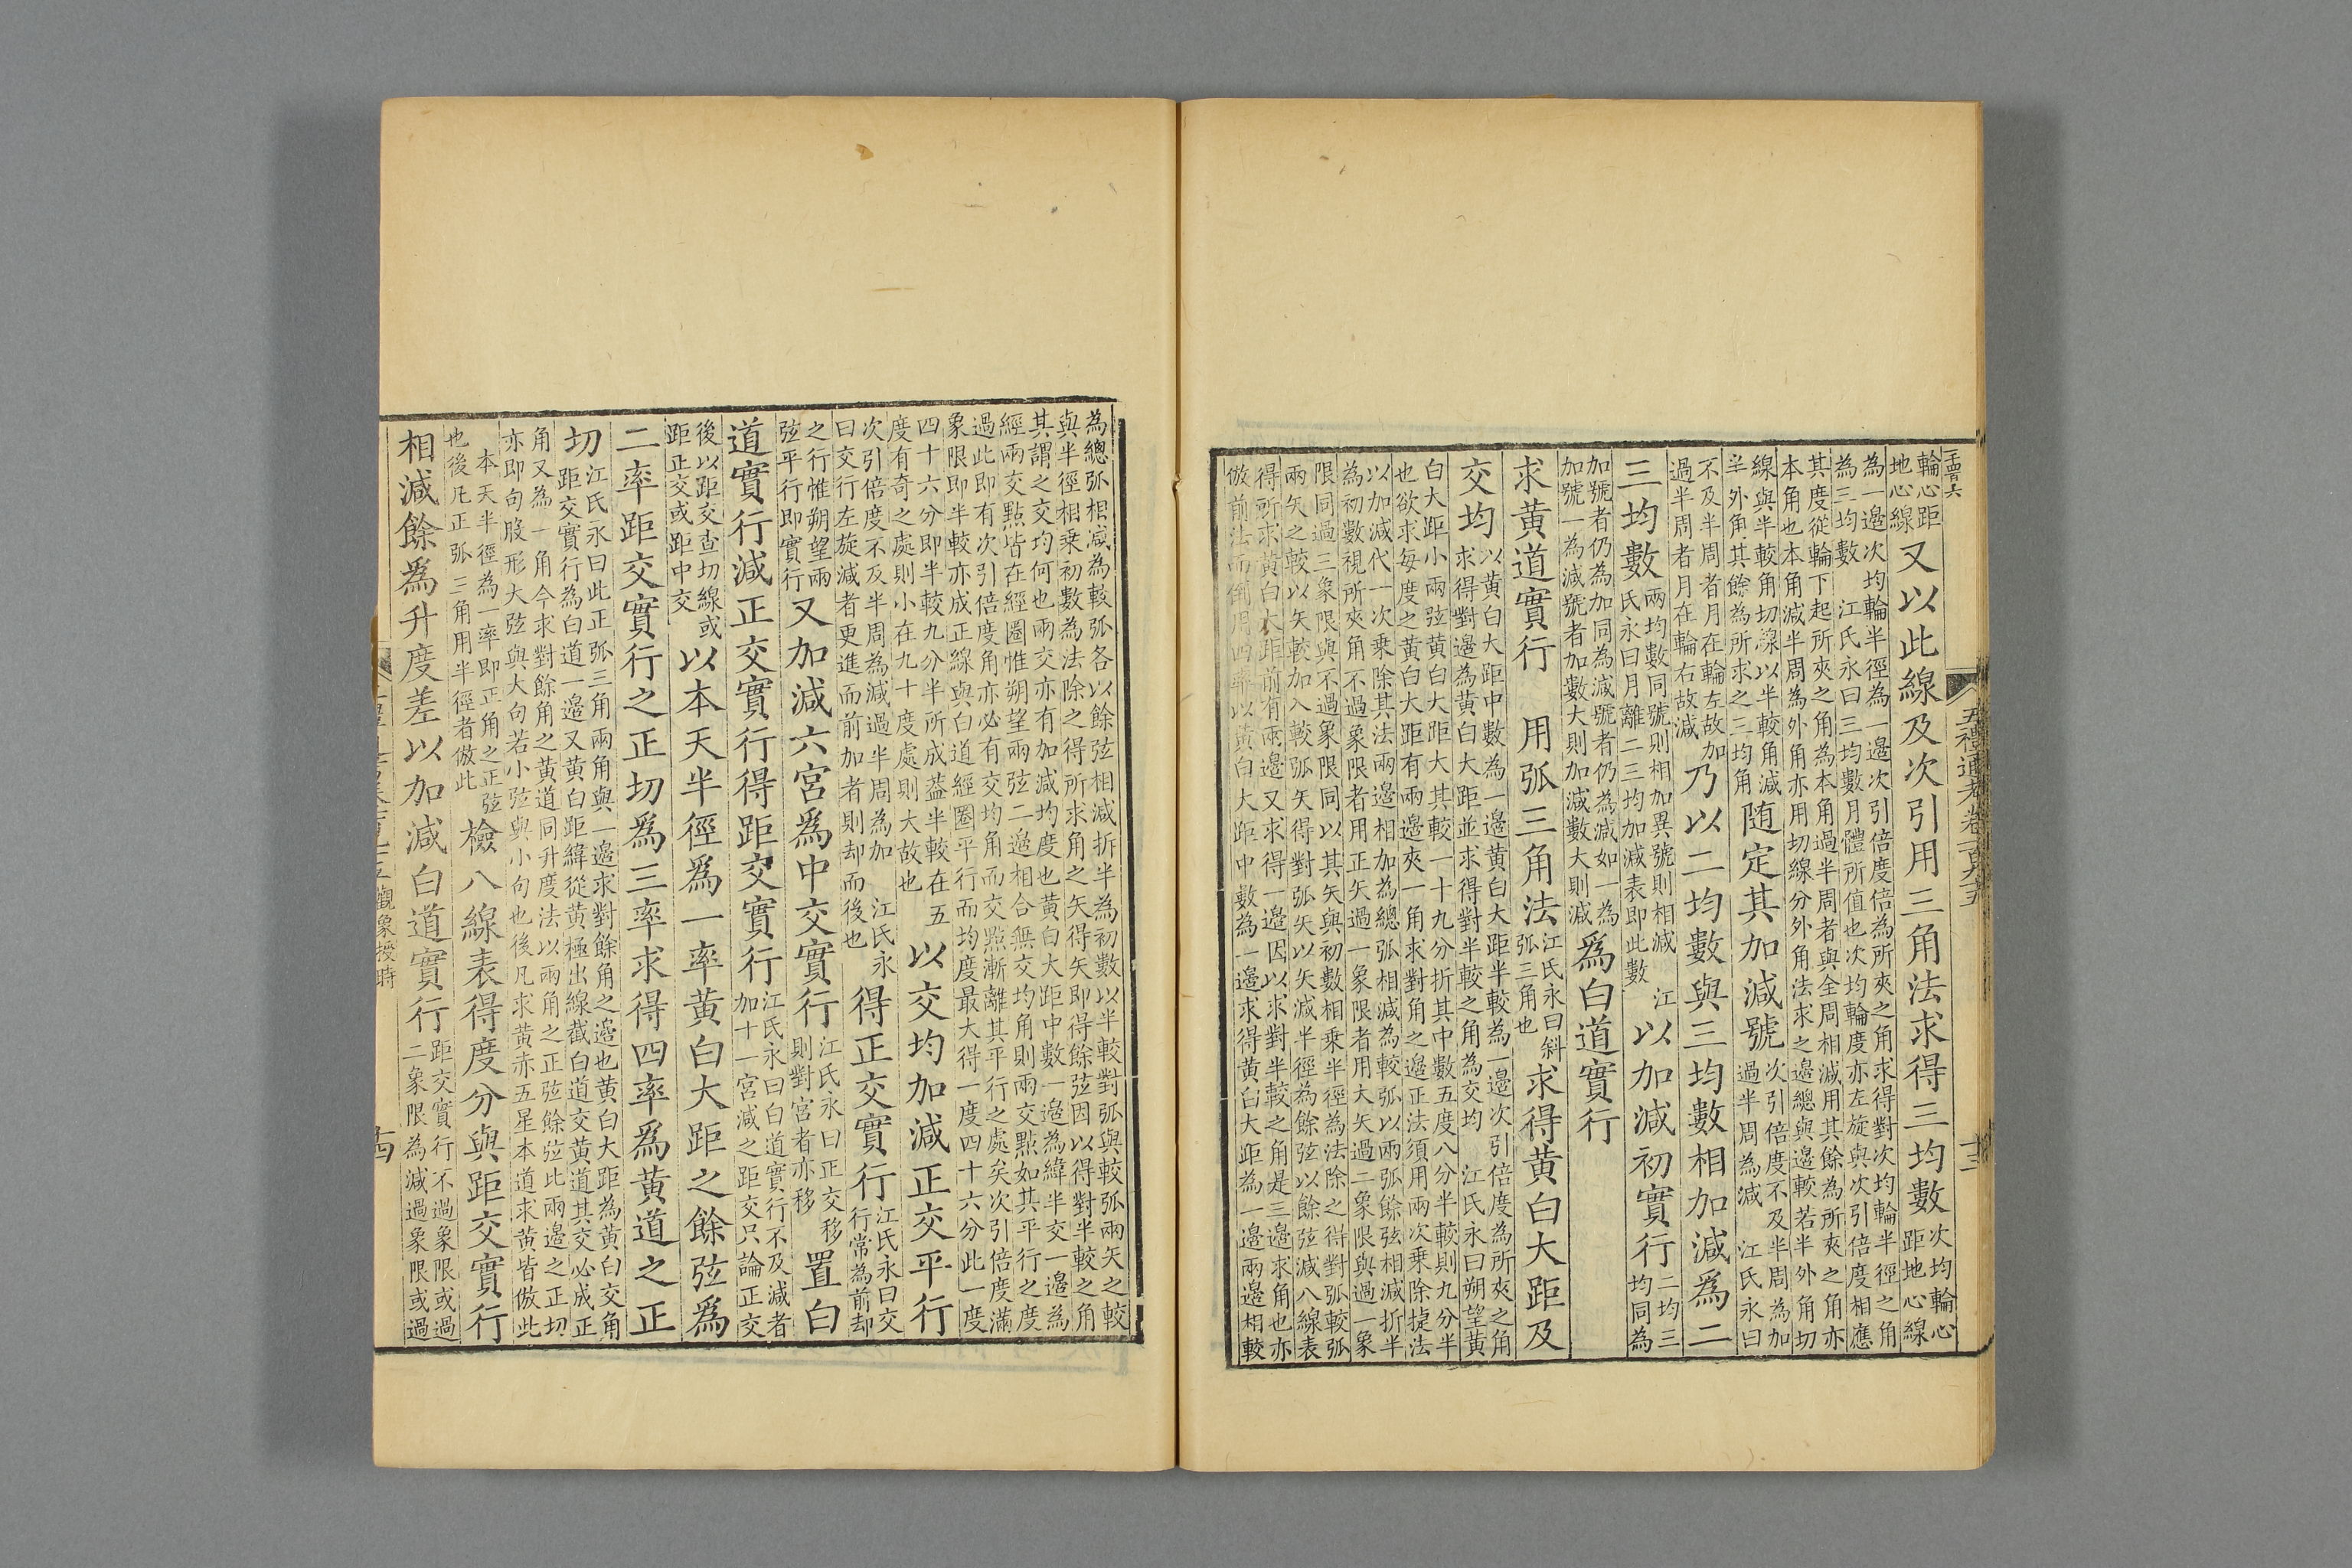 輪心距
地心線
又以此線及次引用三角法求得三均數
次均輪心
距地心線
為一邊次均輪半徑為一邊次引倍度倍為所夾之角求得對次均輪半徑之角
為三均數 江氏永曰三均數月體所值也次均輪度亦左旋與次引倍度相應
其度從輪下起所夾之角為本角過半周者與全周相減用其餘為所夾之角亦
本角也本角減半周為外角亦用切線分外角法求之邊總與邊較若半外角切
線與半較角切線以半較角減
半外角其餘為所求之三均角
随定其加減號
次引倍度不及半周為加
過半周為減 江氏永曰
不及半周者月在輪左故加
過半周者月在輪右故減
乃以二均數與三均數相加減爲二
三均數
兩均數同號則相加異號則相減 江
氏永曰月離二三均加減表即此數
以加減初實行
二均三
均同為
加號者仍為加同為減號者仍為減如一為
加號一為減號者加數大則加減數大則減
爲白道實行
求黄道實行 用弧三角法
江氏永曰斜
弧三角也
求得黄白大距及
交均
以黄白大距中數為一邊黄白大距半較為一邊次引倍度為所夾之角
求得對邊為黄白大距並求得對半較之角為交均 江氏永曰朔望黄
白大距小兩弦黄白大距大其較一十九分折其中數五度八分半較則九分半
也欲求每度之黄白大距有兩邊夾一角求對角之邊正法須用兩次乗除捷法
以加減代一次乗除其法兩邊相加為總弧相減為較弧以兩弧餘弦相減折半
為初數視所夾角不過象限者用正矢過一象限者用大矢過二象限與過一象
限同過三象限與不過象限同以其矢與初數相乗半徑為法除之得對弧較弧
兩矢之較以矢較加入較弧矢得對弧矢以矢減半徑為餘弦以餘弦減八線表
得所求黄白大距前有兩邊又求得一邊因以求對半較之角是三邊求角也亦
倣前法而倒用四率以黄白大距中數為一邊求得黄白大距為一邊兩邊相較
為總弧相減為較弧各以餘弦相減折半為初數以半較對弧與較弧兩矢之較
與半徑相乗初數為法除之得所求角之矢得矢即得餘弦因以得對半較之角
其謂之交均何也兩交亦有加減均度也黄白大距中數一邊為緯半交一邊為
經兩交點皆在經圈惟朔望兩弦二邊相合無交均角則兩交點如其平行之度
過此即有次引倍度角亦必有交均角而交點漸離其平行之處矣次引倍度滿
象限即半較亦成正線與白道經圈平行而均度最大得一度四十六分此一度
四十六分即半較九分半所成葢半較在五
度有奇之處則小在九十度處則大故也
以交均加減正交平行
次引倍度不及半周為減過半周為加 江氏永
曰交行左旋減者更進而前加者則却而後也
得正交實行
江氏永曰交
行常為前却
之行惟朔望兩
弦平行即實行
又加減六宮爲中交實行
江氏永曰正交移
則對宮者亦移
置白
道實行減正交實行得距交實行
江氏永曰白道實行不及減者
加十一宮減之距交只論正交
後以距交查切線或
距正交或距中交
以本天半徑爲一率黄白大距之餘弦爲
二率距交實行之正切爲三率求得四率爲黄道之正
切
江氏永曰此正弧三角兩角與一邊求對餘角之邊也黄白大距為黄白交角
距交實行為白道一邊又黄白距緯從黄極出線截白道交黄道其交必成正
角又為一角今求對餘角之黄道同升度法以兩角之正弦餘弦此兩邊之正切
亦即句股形大弦與大句若小弦與小句也後凡求黄赤五星本道求黄皆倣此
本天半徑為一率即正角之正弦
也後凡正弧三角用半徑者倣此
檢八線表得度分與距交實行
相減餘爲升度差以加減白道實行
距交實行不過象限或過
二象限為減過象限或過
五禮通考卷一百九十五
觀象授時
十三
十四